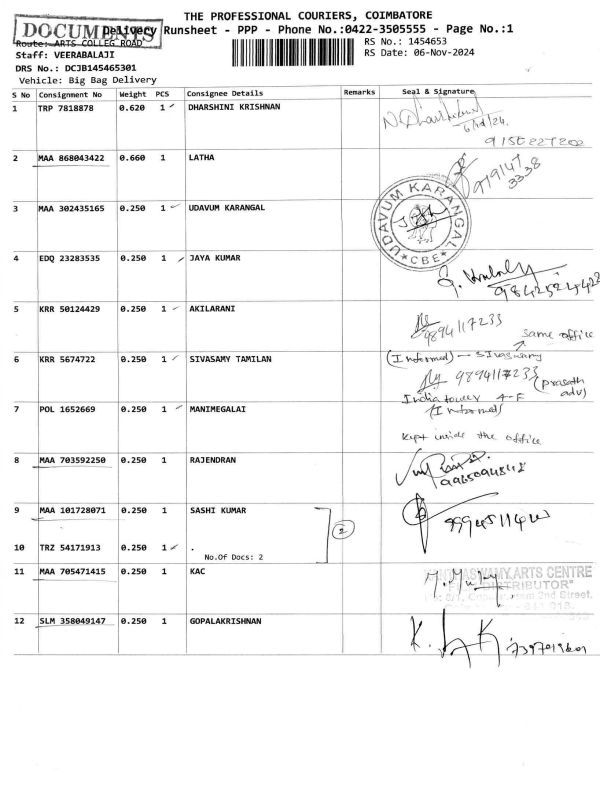 THE PROFESSIONAL COURIERS, COIMBATORE
DOCUMENTS
Delivery Runsheet - PPP - Phone No.:0422-3505555 - Page No.:1
Route: ARTS COLLEG ROAD
RS No.: 1454653
Staff: VEERABALAJI
RS Date: 06-Nov-2024
DRS No.: DCJB145465301
Vehicle: Big Bag Delivery
S No Consignment No Weight PCS Consignee Details Remarks Seal & Signature
1 TRP 7818878 0.620 1 DHARSHINI KRISHNAN
2 MAA 868043422 0.660 1 LATHA
3 MAA 302435165 0.250 1 UDAVUM KARANGAL
UDAVUM KARANGAL
CBE
4 EDQ 23283535 0.250 1 JAYA KUMAR
5 KRR 50124429 0.250 1 AKILARANI
9894117233
same office
6 KRR 5674722 0.250 1 SIVASAMY TAMILAN
(Informed) - Sivaswamy
9894117233 (prasath adv)
India tower 4-F
7 POL 1652669 0.250 1 MANIMEGALAI
(Informed)
kept inside the office
8 MAA 703592250 0.250 1 RAJENDRAN
9 MAA 101728071 0.250 1 SASHI KUMAR
2
10 TRZ 54171913 0.250 1 .
No.Of Docs: 2
11 MAA 705471415 0.250 1 KAC
ARTS CENTRE
2nd Street,
12 SLM 358049147 0.250 1 GOPALAKRISHNAN